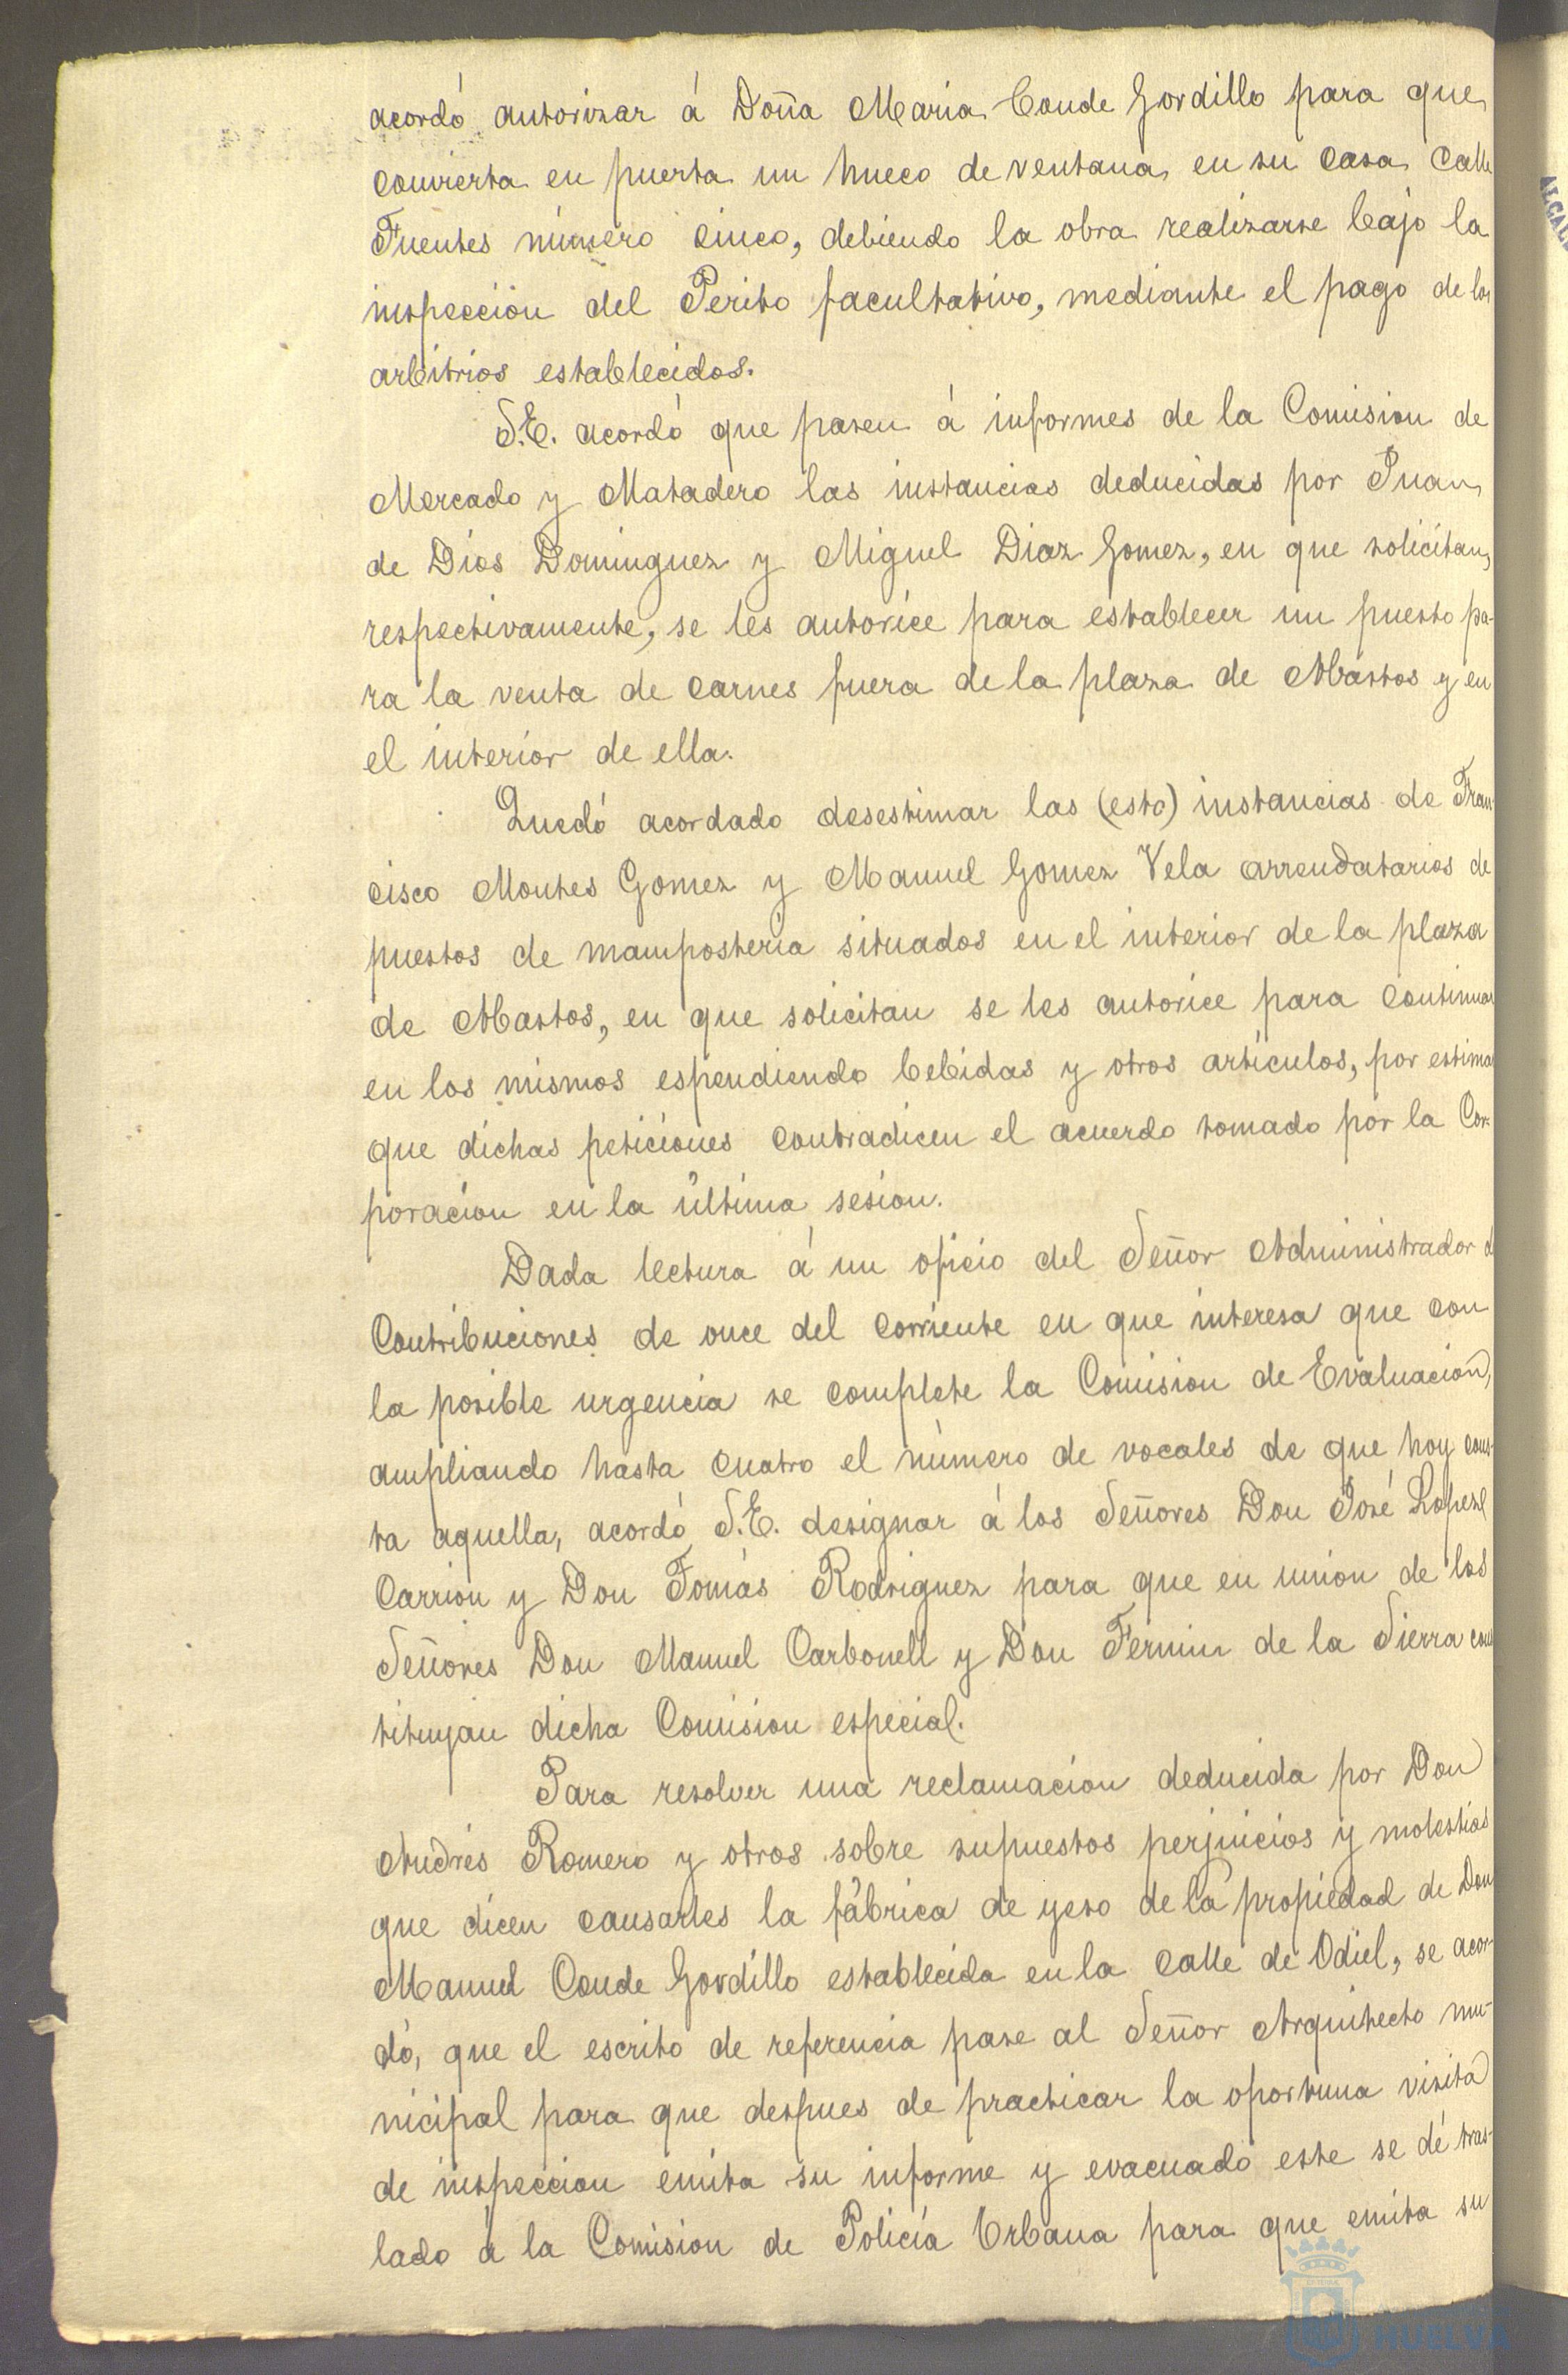 acordó autorizar á Doña Maria Conde Gordillo para que
convierta en puerta un hueco de ventana en su casa calle
Fuentes número cinco, debiendo la obra realizarse bajo la
inspección del Perito facultativo, mediante el pago de los
arbitrios establecidos.
S.E. acordó que pasen á informes de la Comision de
Mercado y Matadero las instancias deducidas por Juan
de Dios Dominguez y Miguel Diaz Gomez, en que solicitan,
respectivamente, se les autorice para establecer un puesto pa-
ra la venta de carnes fuera de la plaza de Abastos y en
el interior de ella.
Quedó acordado desestimar las (esto) instancias de Fran-
cisco Montes Gomez y Manuel Gomez Vela arrendatarios de
puestos de mamposteria situados en el interior de la plaza
de Abastos, en que solicitan se les autorice para continuar
en los mismos espendiendo bebidas y otros artículos, por estimar
que dichas peticiones contradicen el acuerdo tomado por la Cor-
poracion en la última sesion.
Dada lectura á un oficio del Señor Administrador de
Contribuciones de once del corriente en que interesa que con
la posible urgencia se complete la Comision de Evaluacion,
ampliando hasta cuatro el número de vocales de que hoy cons-
ta aquella, acordó S.E. designar á los Señores Don José Lopez
Carrion y Don Tomás Rodriguez para que en union de los
Señores Don Manuel Carbonell y Don Fermin de la Sierra cons
tituyan dicha Comision especial.
Para resolver una reclamacion deducida por Don
Andrés Romero y otros sobre supuestos perjuicios y molestias
que dicen causarles la fábrica de yeso de la propiedad de Don
Manuel Conde Gordillo establecida en la calle de Odiel, se acor-
dó, que el escrito de referencia pase al Señor Arquitecto mu-
nicipal para que despues de practicar la oportuna visita
de inspeccion emita su informe y evacuado este se dé tras-
lado á la Comision de Policía Urbana para que emita su
HUELVA